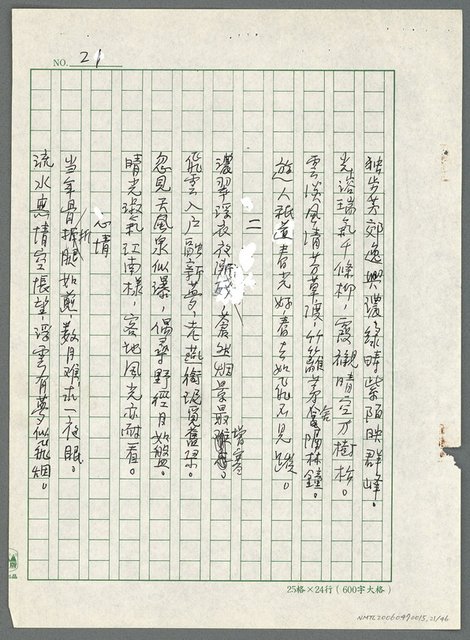 NO. 21
獨步芳郊逸興濃，綠疇紫陌映群峰。
光溶瑞氣千條柳，霞襯晴空萬樹松。
雲淡風清芳草渡，竹籬茅舍隔林鐘。
遊人祇道春光好，春去如飛不見蹤。
二
濃翠浮衣夜 蒼然烟景最
飛雲入戶融新夢，老燕銜泥覓舊梁。
忽見天風泉似瀑，偶尋野徑月如盤。
晴光淑氣江南樣，客地風光亦耐看。
心情
當年骨折腿如剪，數月難求一夜眠。
流水無情空悵望，浮雲有夢似飛烟。
25格×24行(600字大格)
NMTL20060470015,21/46